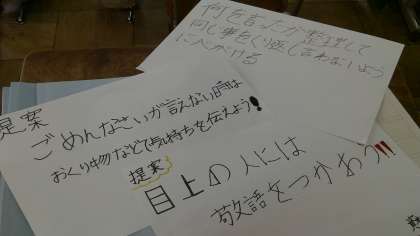 何を言ったか整理して
同じ事をくり返し言わないよう
に心がける
提案
ごめんなさいが言えない時は
おくり物などで気持ちを伝えよう!
提案
目上の人には
敬語をつかおう!!